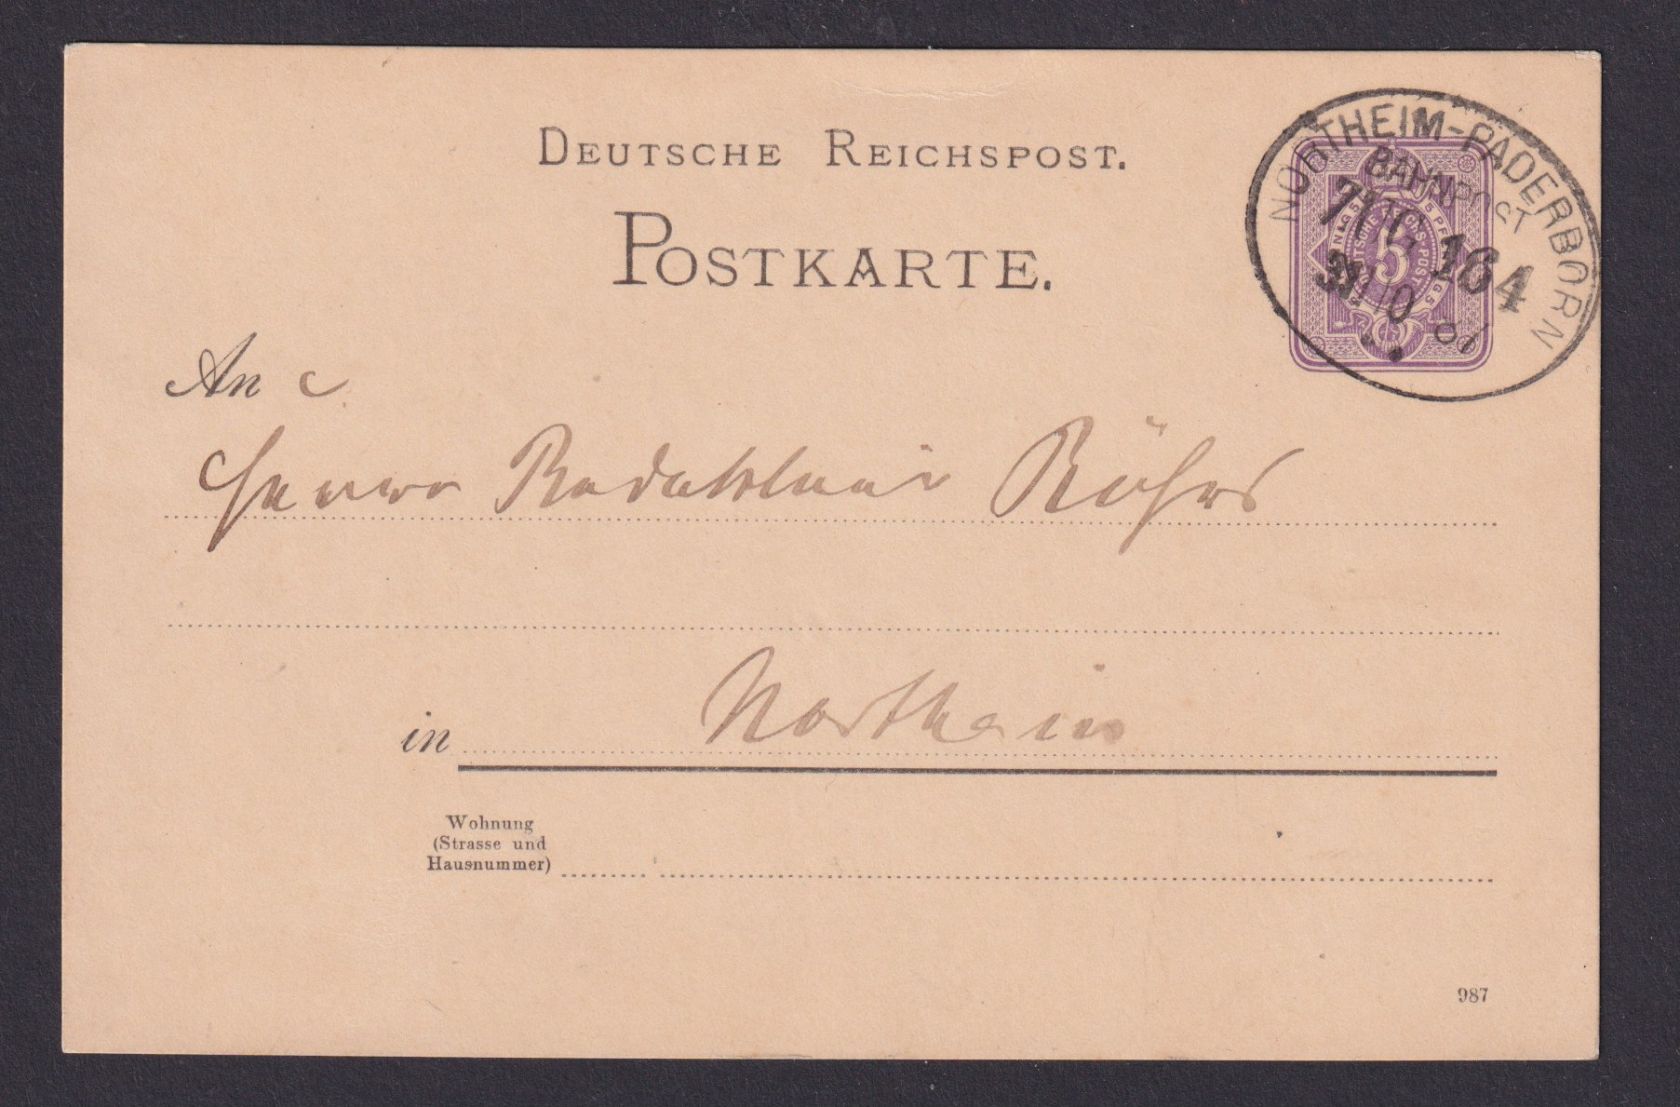 DEUTSCHE REICHSPOST.
POSTKARTE.
NORTHEIM-PADERBORN
BAHNPOST
ZUG 164
10
5
An
Herrn Redakteur Röhrs
in Northeim
Wohnung
(Strasse und
Hausnummer)
987